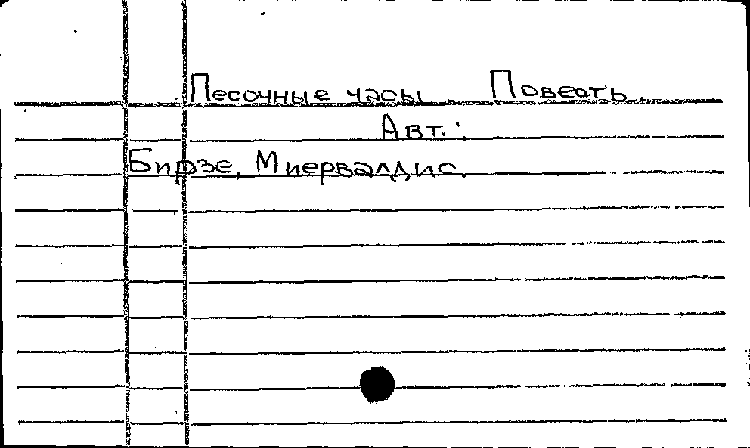 Песочные часы. Повесть.
Авт.:
Бирзе, Миервалдис.